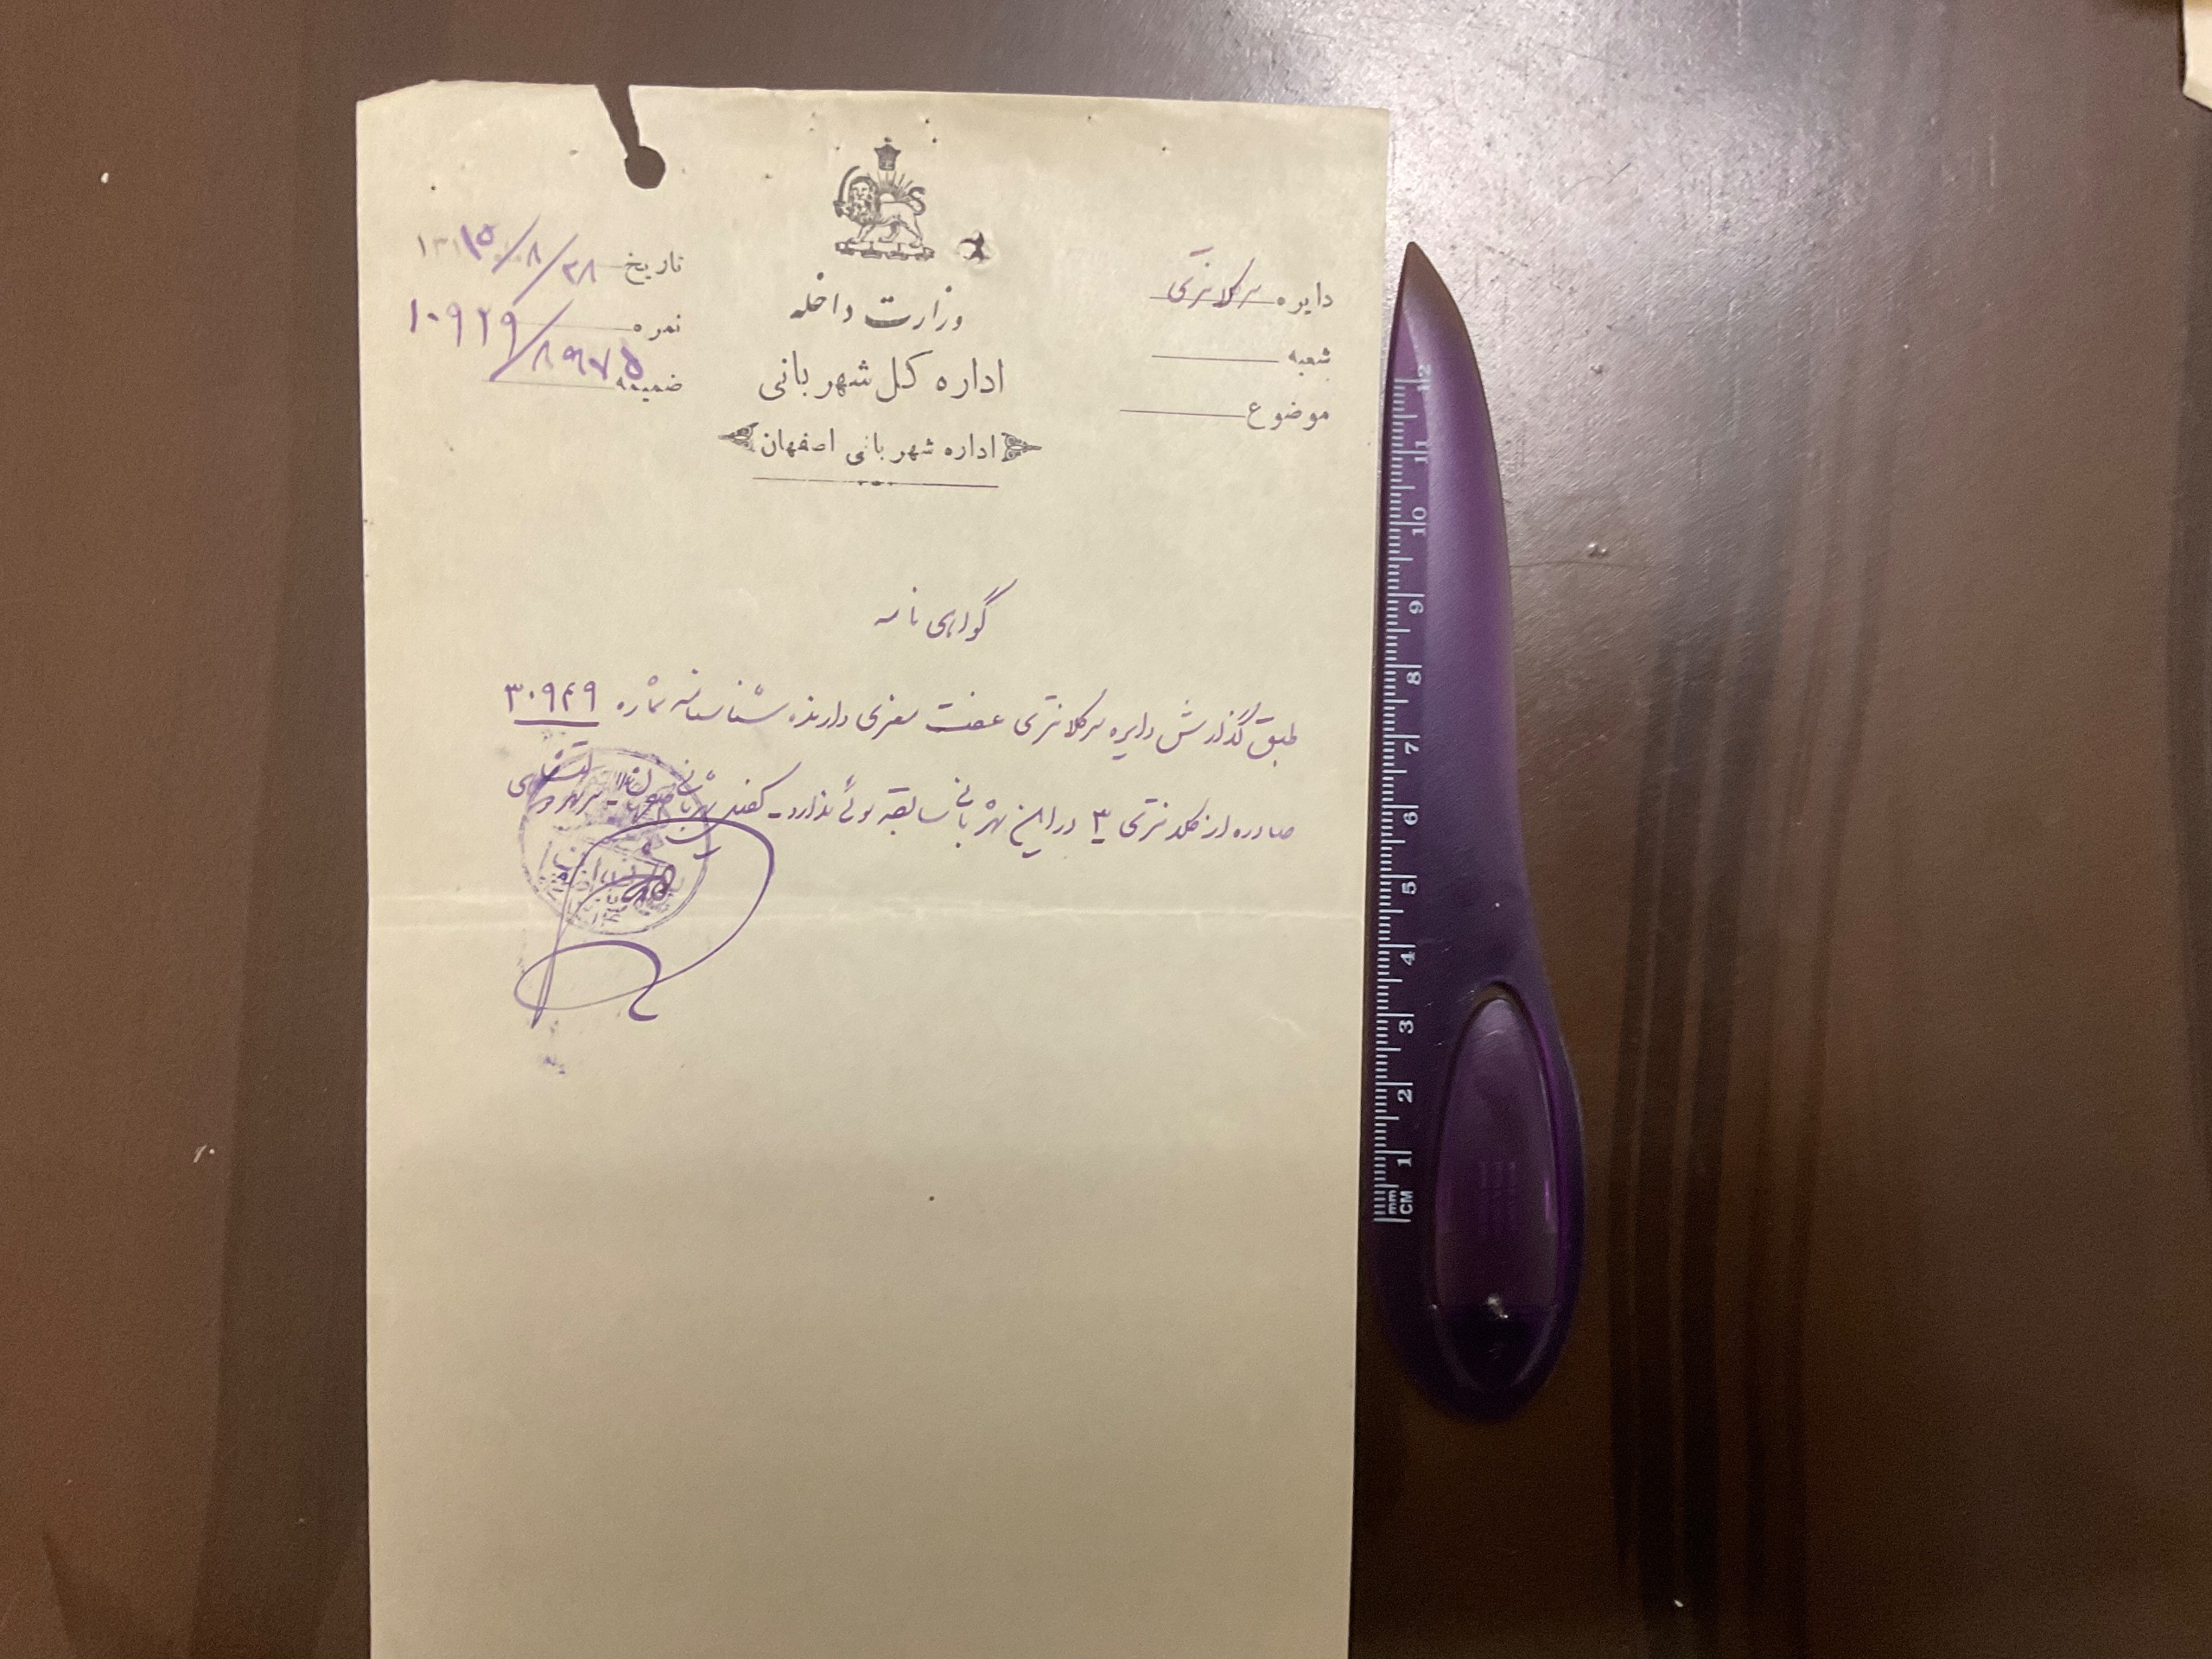 وزارت داخله
اداره کل شهربانی
اداره شهربانی اصفهان
دایره سرکلانتری
شعبه
موضوع
تاریخ ۲۸/۸/۱۳۱۵
نمره ۱۰۹۲۹/۸۹۷۵
ضمیمه
گواهی نامه
طبق گذارش دایره سرکلانتری عفت دارنده شناسنامه شماره ۳۰۹۴۹
صادره از کلانتری ۳ در این شهربانی سابقه سوئی ندارد ـ کفیل شهربانی اصفهان ـ سرهرو
12 11 10 9 8 7 6 5 4 3 2 1 mm CM